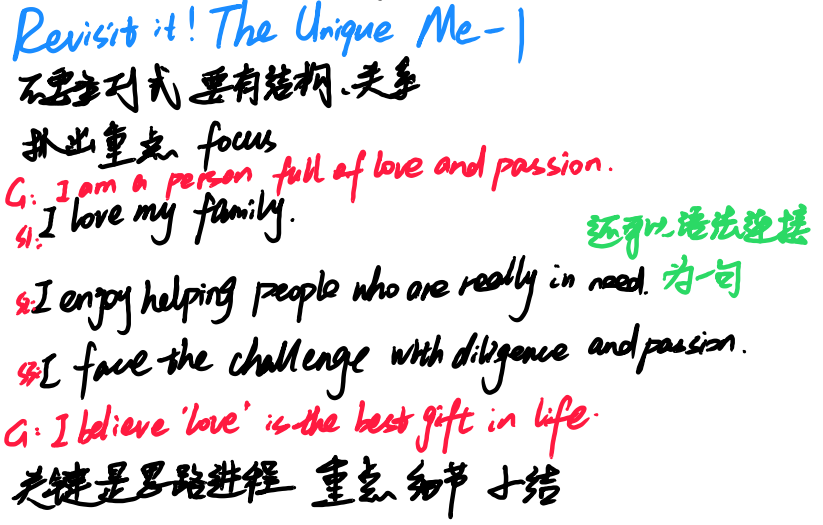 Revisit it! The Unique Me-1
不要全列式 要有结构、关系
扒出重点 focus
G: I am a person full of love and passion.
S1: I love my family.
还可以语法连接
S2: I enjoy helping people who are really in need.
为一句
S3: I face the challenge with diligence and passion.
G: I believe 'love' is the best gift in life.
关键是思路进程 重点 细节 小结